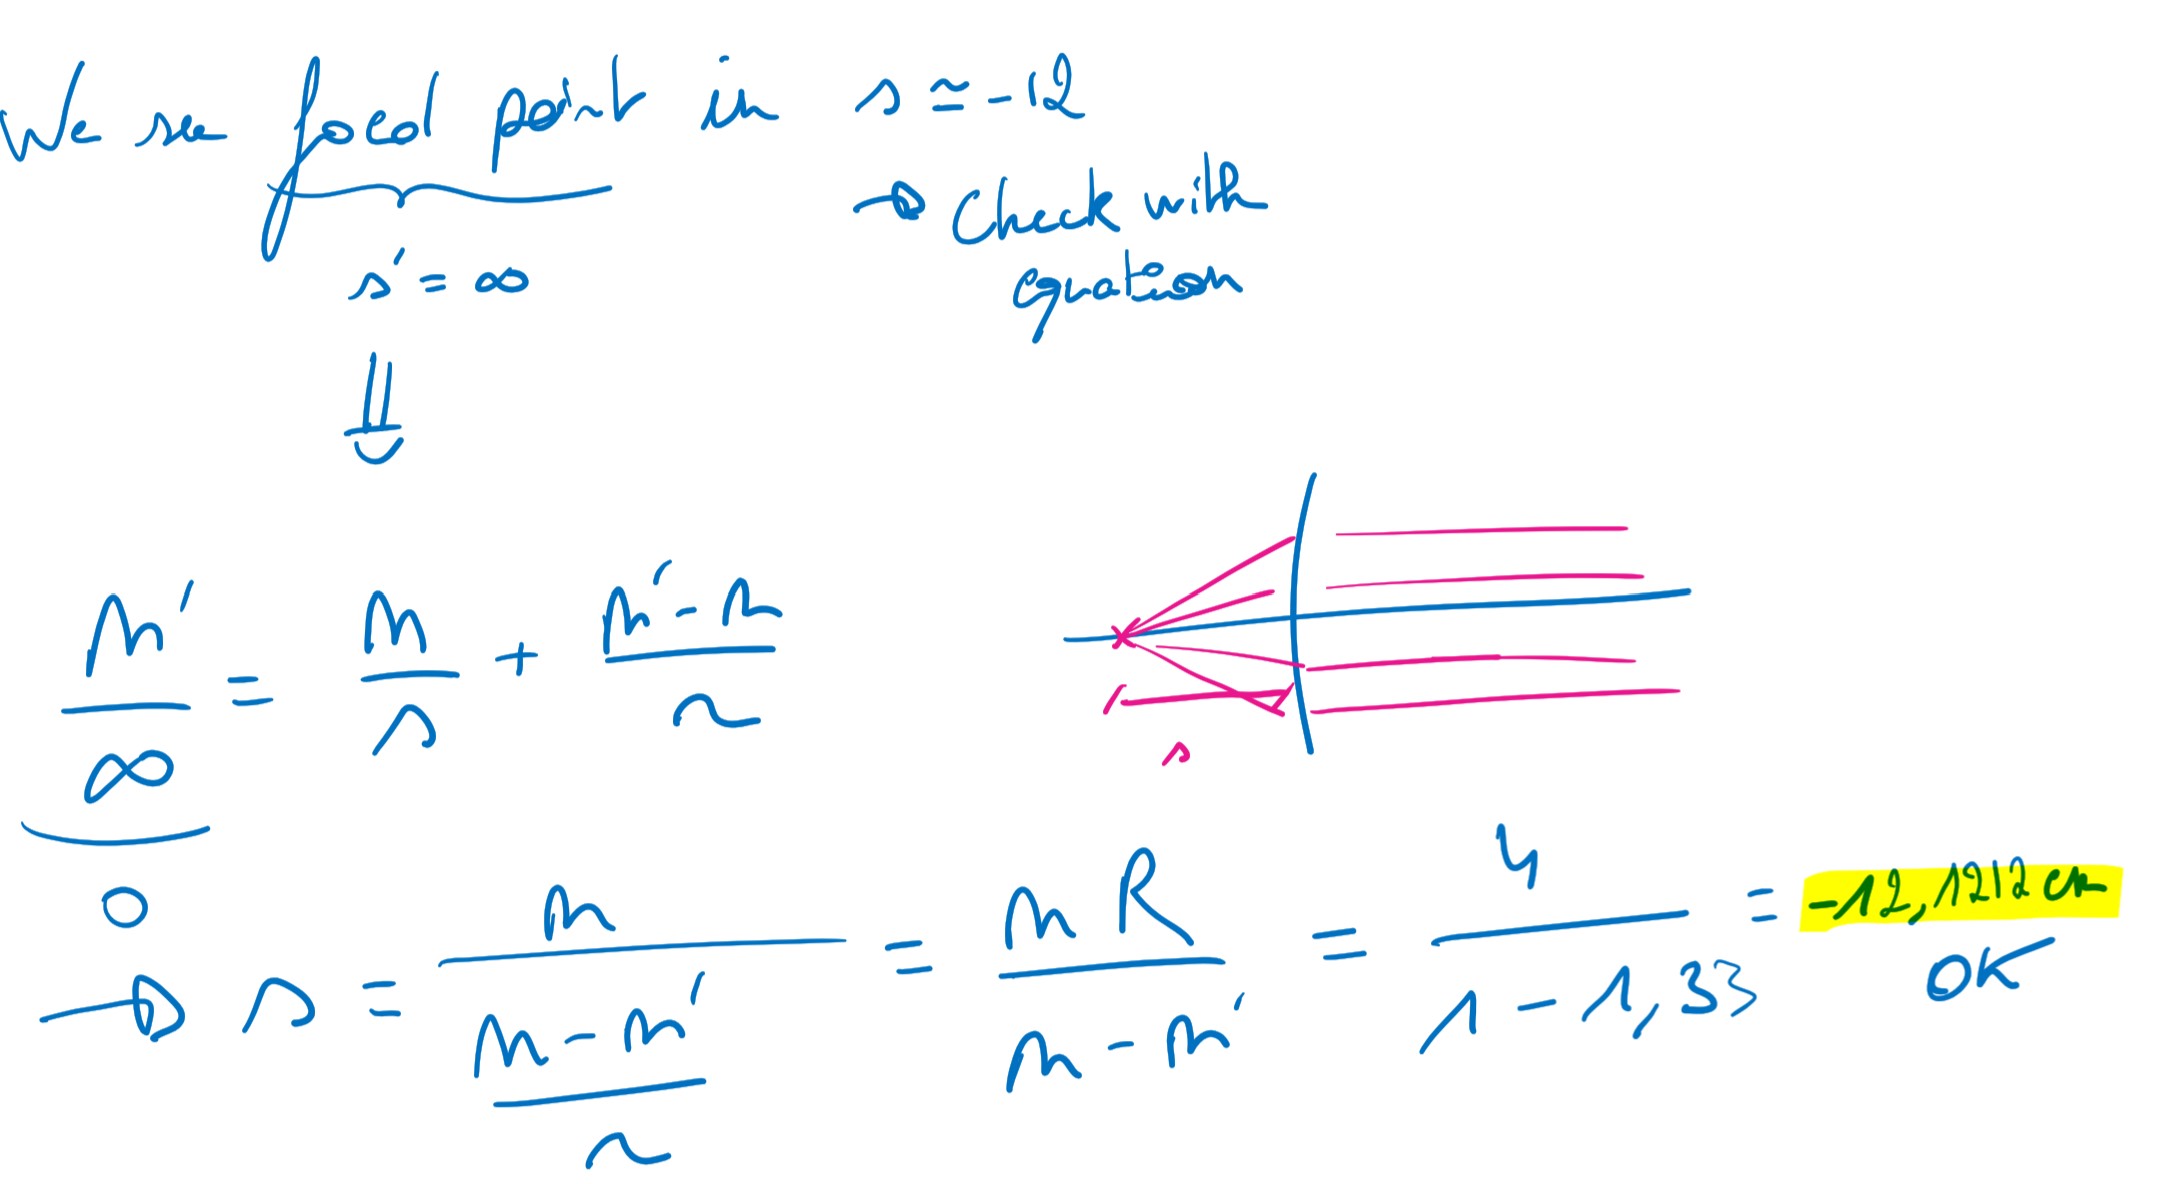 We see focal point in s ≃ -12
→ Check with
equation
s' = ∞
⇓
n'/∞ = n/s + (n' - n)/r
0
s
→ s = n/((n - n')/r) = nR/(n - n') = 4/(1 - 1,33) = -12,1212 cm
OK